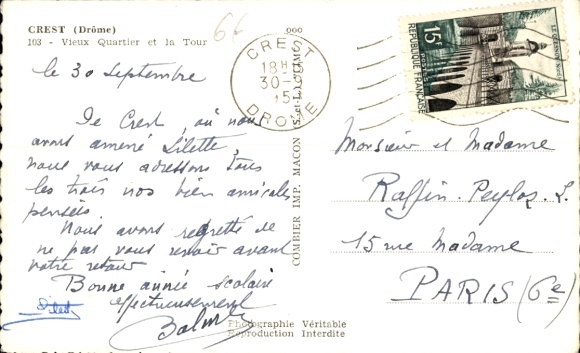 CREST (Drôme)
103 - Vieux Quartier et la Tour
6f
le 30 Septembre
De Crest, où nous
avons amené Lilette,
nous vous adressons tous
les trois nos bien amicales
pensées.
Nous avons regretté de
ne pas vous revoir avant
votre retour
Bonne année scolaire
affectueusement
COMBIER IMP. MACON
Photographie Véritable
Reproduction Interdite
CREST
18H
30-
DROME
15F
REPUBLIQUE FRANÇAISE
Monsieur et Madame
Raffin-
15 rue Madame
PARIS (6e)